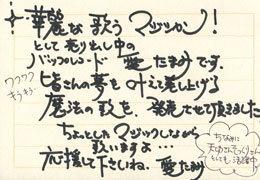 華麗な歌うマジシャン!
として売り出し中の
バップレコード 愛たまみです.
ワクワク
キラキラ
皆さんの夢を叶えて差し上げる
魔法の歌を、発表させて頂きました
ちょっとしたマジックしながら
歌いますよ…
応援して下さいね。愛たまみ
ちなみに
天功さんそっくりさん
としても活躍中